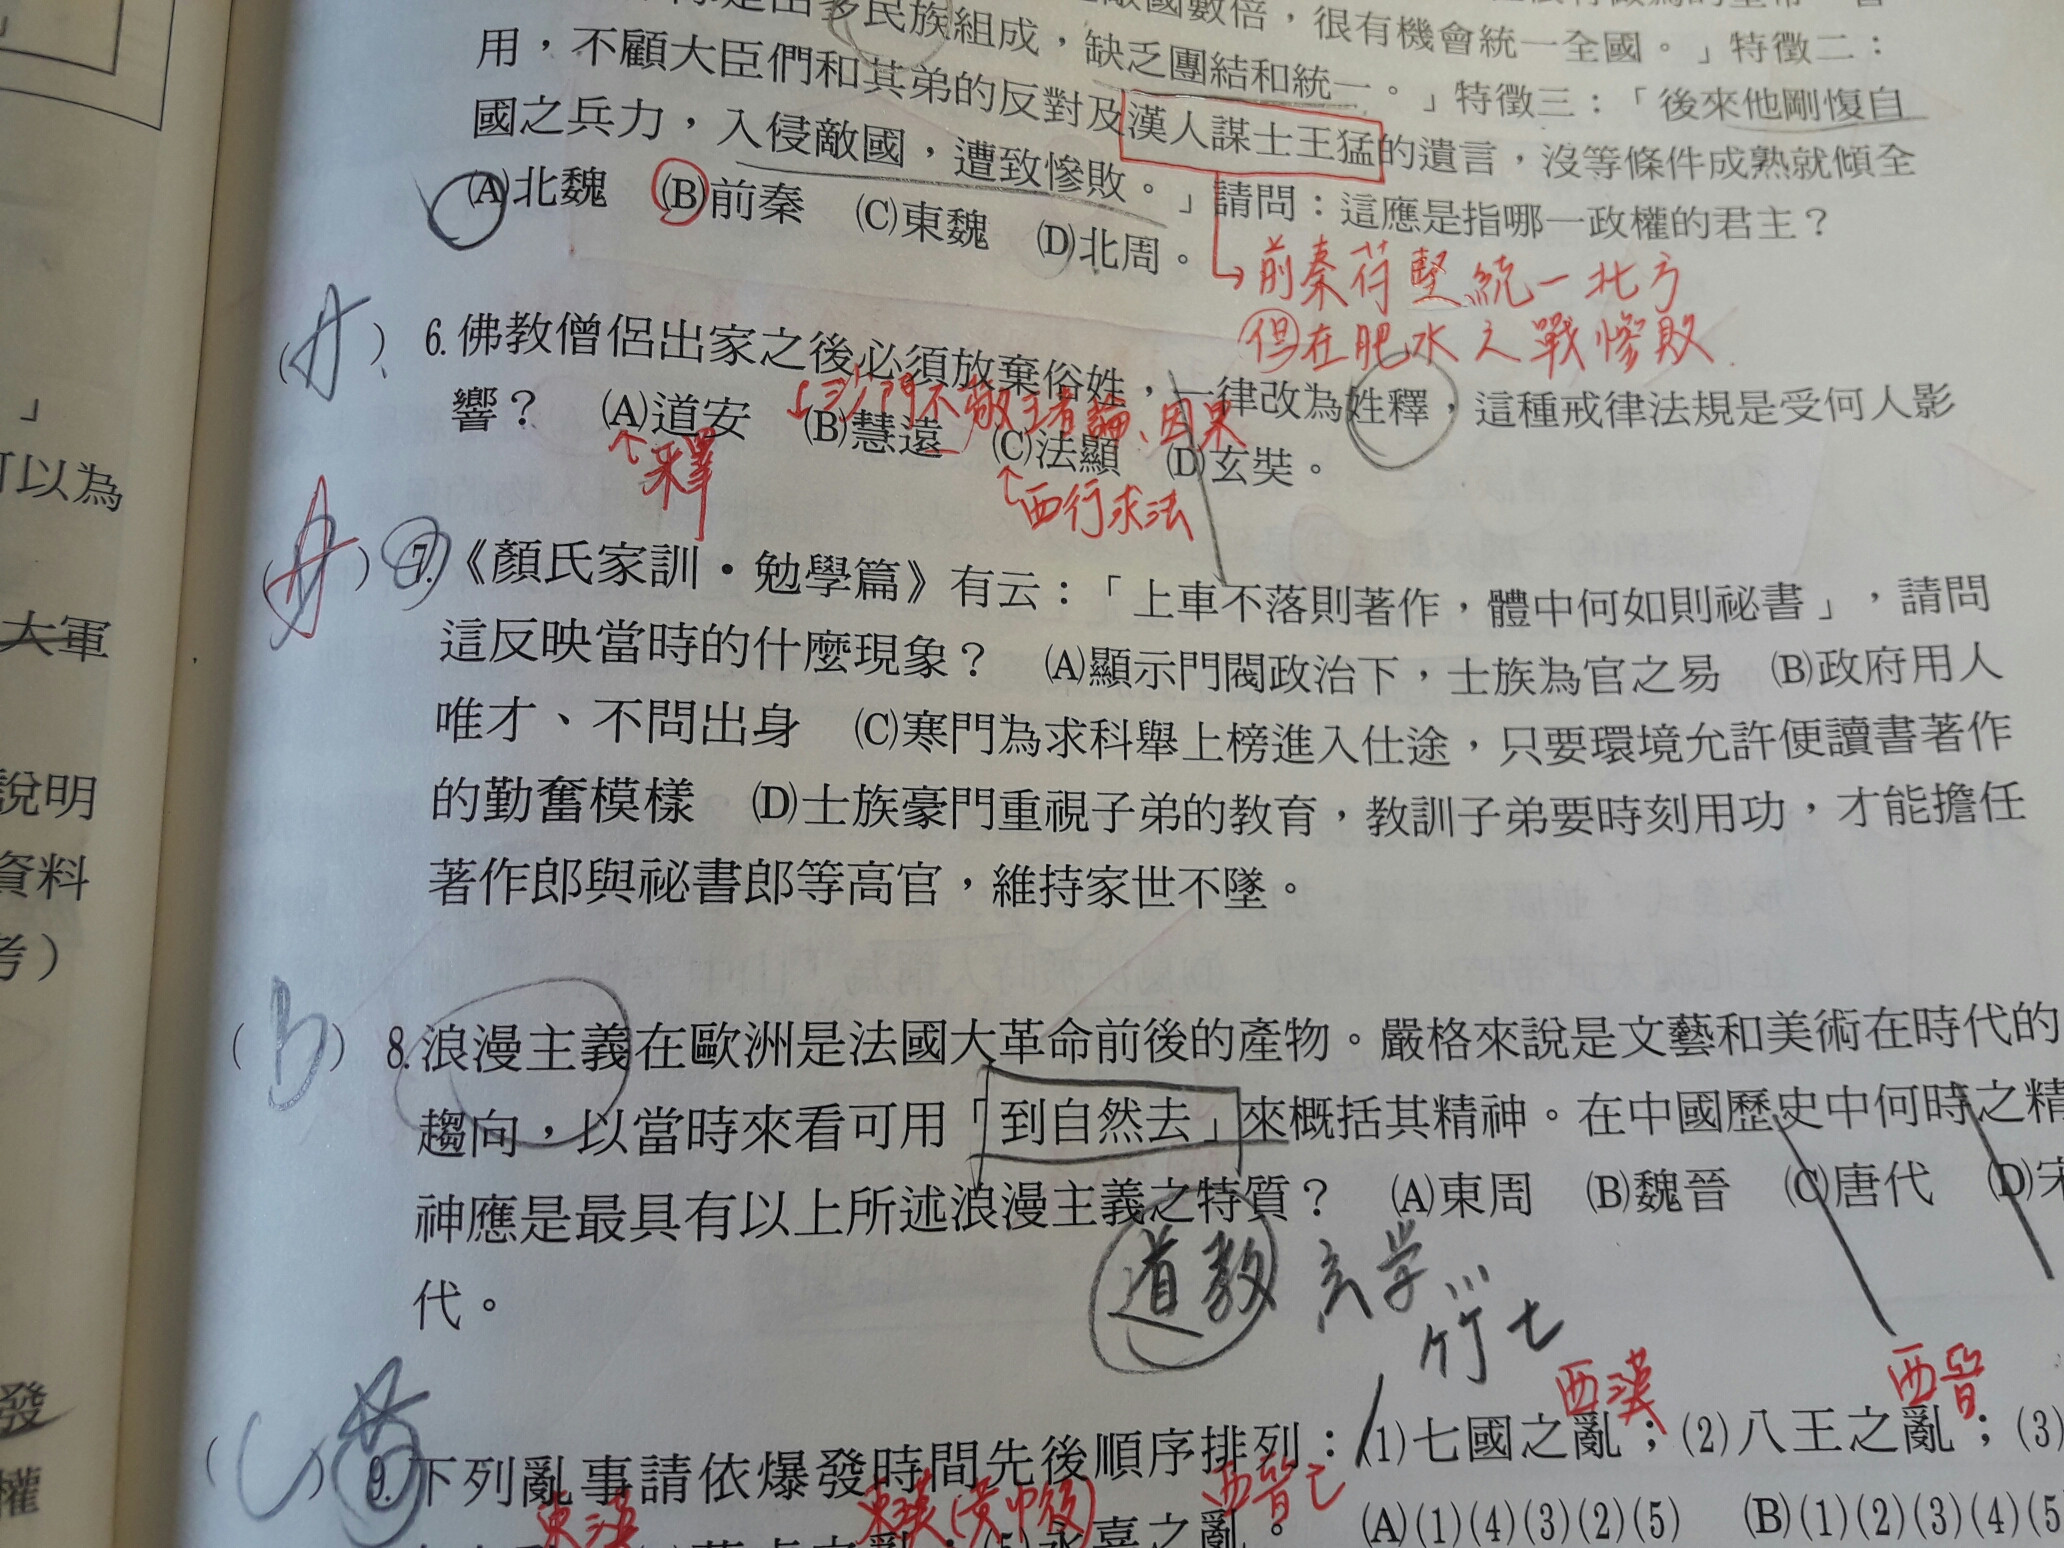 多民族組成，缺乏團結和統一。」特徵三：「後來他剛愎自
敵國數倍，很有機會統一全國。」特徵二：
用，不顧大臣們和其弟的反對及漢人謀士王猛的遺言，沒等條件成熟就傾全
國之兵力，入侵敵國，遭致慘敗。」請問：這應是指哪一政權的君主？
(A)北魏 (B)前秦 (C)東魏 (D)北周。
前秦苻堅統一北方
但在肥水之戰慘敗
(A) 6.佛教僧侶出家之後必須放棄俗姓，一律改為姓釋，這種戒律法規是受何人影
沙門不敬王者論、因果
響？ (A)道安 (B)慧遠 (C)法顯 (D)玄奘。
釋
西行求法
(A) 7.《顏氏家訓・勉學篇》有云：「上車不落則著作，體中何如則祕書」，請問
這反映當時的什麼現象？ (A)顯示門閥政治下，士族為官之易 (B)政府用人
唯才、不問出身 (C)寒門為求科舉上榜進入仕途，只要環境允許便讀書著作
的勤奮模樣 (D)士族豪門重視子弟的教育，教訓子弟要時刻用功，才能擔任
著作郎與祕書郎等高官，維持家世不墜。
(b) 8.浪漫主義在歐洲是法國大革命前後的產物。嚴格來說是文藝和美術在時代的
趨向，以當時來看可用「到自然去」來概括其精神。在中國歷史中何時之精
神應是最具有以上所述浪漫主義之特質？ (A)東周 (B)魏晉 (C)唐代 (D)宋
代。
道教 玄学...
竹七
西漢 西晉
9.下列亂事請依爆發時間先後順序排列：(1)七國之亂；(2)八王之亂；(3)
東漢 東漢(黃巾後) 西晉亡
永嘉之亂。 (A)(1)(4)(3)(2)(5) (B)(1)(2)(3)(4)(5
」
可以為
大軍
說明
資料
考）
發
權